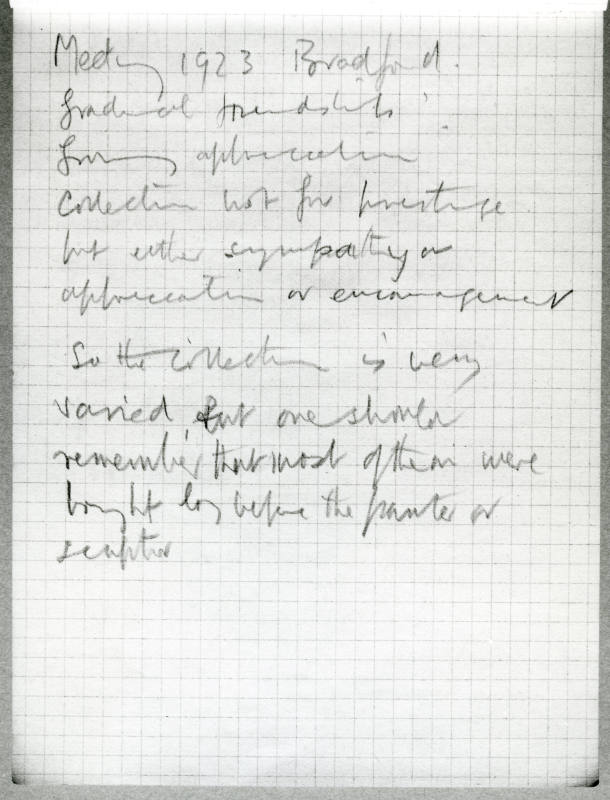 Meeting 1923 Bradford.
gradual friendship.
growing appreciation
Collection not for prestige
but either sympathy or
appreciation or encouragement
So the collection is very
varied, but one should
remember that most of them were
bought long before the painter or
sculptor